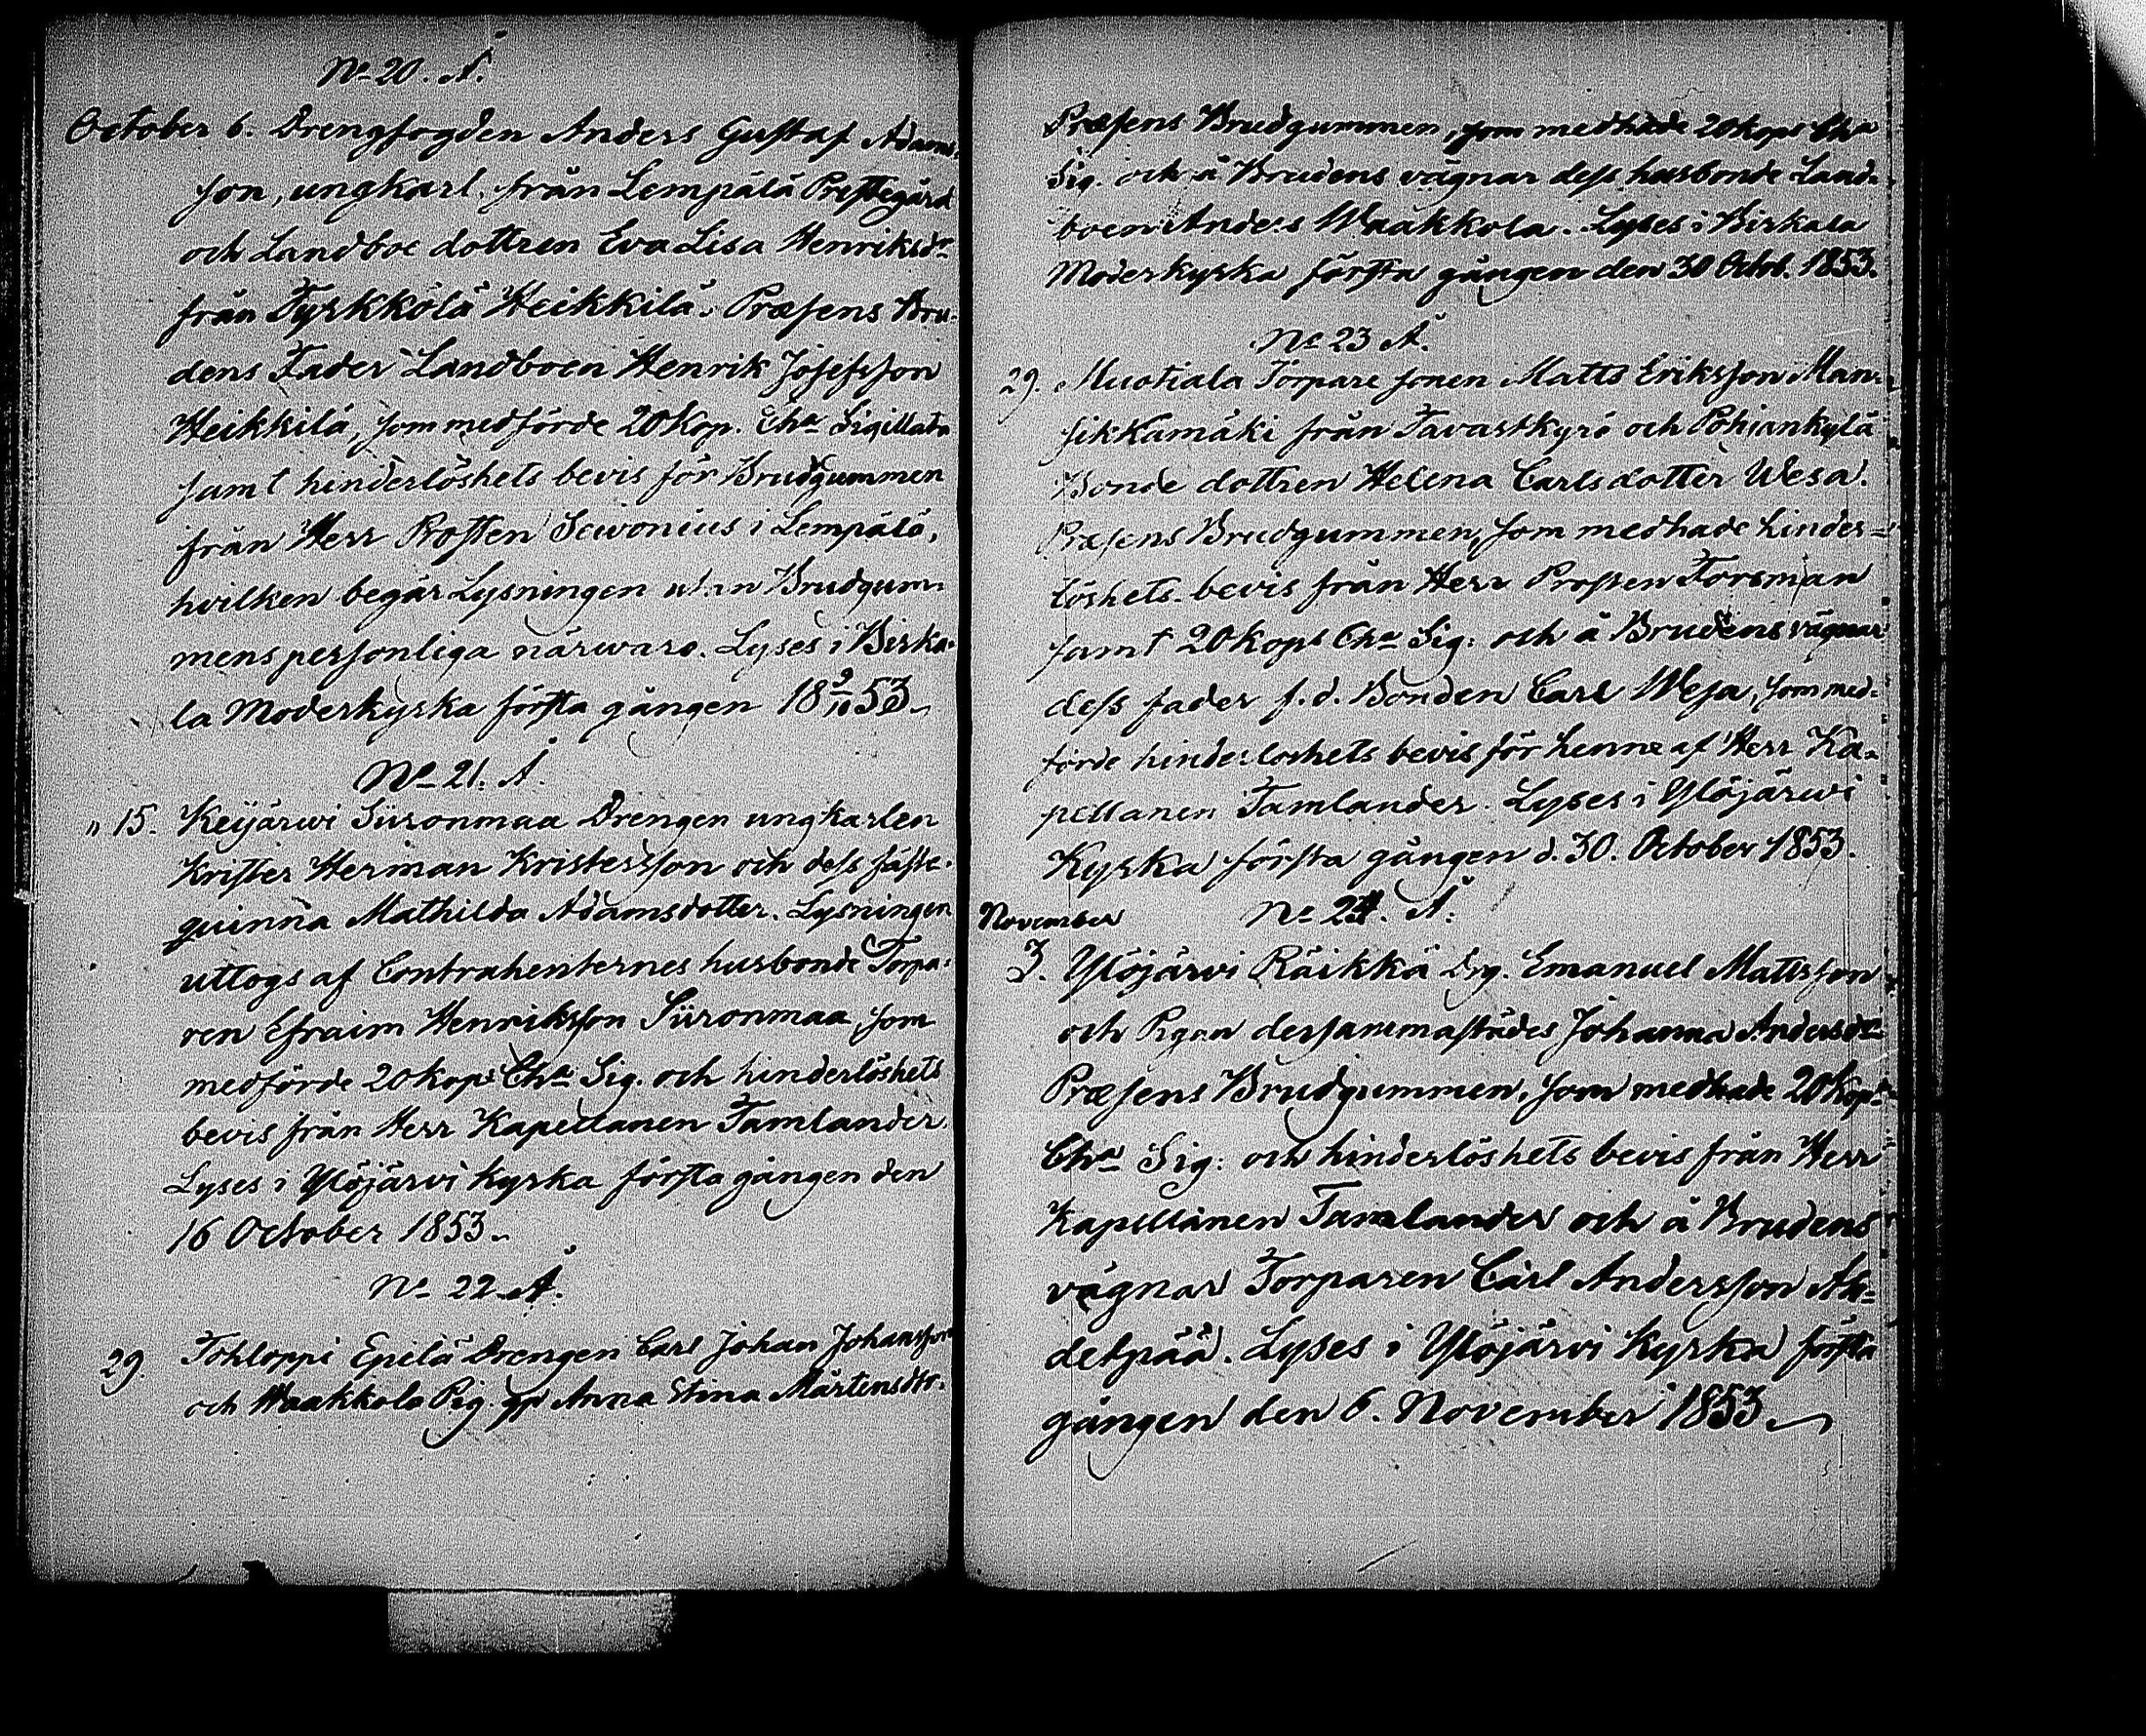 No 20. Å.
October 6. Drengfogden Anders Gustaf Adams-
son, ungkarl. från Lempälä Prestegård
och Landboe dottren Eva Lisa Henriksdr
från Tyrkkölä Heikkilä. Præsens Bru-
dens Fader Landboen Henrik Josefsson
Heikkilä, som medförde 20 Kop. Cha Sigillata
samt hinderlöshets bevis för Brudgummen
från Herr Prosten Sevonius i Lempälä,
hvilken begär Lysningen utan Brudgum-
mens personliga närwaro. Lyses i Birka-
la Moderkyrka första gången 18 9/10 53.
No 21. Å.
" 15. Keijärwi Siironmaa Drengen ungkarlen
Krister Herman Kristersson och dess fäste-
quinna Mathilda Adamsdotter. Lysningen
uttogs af Contrahenternes husbonde Torpa-
ren Efraim Henriksson Siironmaa som
medförde 20 Kops Cha Sig. och hinderlöshets
bevis från Herr Kapellanen Tamlander
Lyses i Ylöjärvi kyrka första gången den
16 October 1853.
No 22 Å.
29. Tohloppi Epilä Drengen Carl Johan Johansson
och Waakkola Pig. Anna Stina Mårtensdtr.
Præsens Brudgummen, som medhade 20 kops Cha
Sig. och å Brudens vägnar dess husbonde Land-
boen Anders Waakkola. Lyses i Birkala
Moderkyrka första gången den 30 Octob. 1853.
No 23 Å.
29. Muotiala Torpare sonen Matts Eriksson Man-
sikkamäki från Tavastkyrö och Pohjankylä
Bonde dottren Helena Carlsdotter Wesa.
Præsens Brudgummen, som medhade hinder-
löshets-bevis från Herr Prosten Forsman
samt 20 kops Cha Sig: och å Brudens vägnar
dess fader f.d. Bonden Carl Wesa, som med-
förde hinderloshets bevis för henne af Herr Ka-
pellanen Tamlander. Lyses i Ylöjärwi
Kyrka första gången d. 30. October 1853.
November No 24. Å.
3. Ylöjärvi Räikkä Drg. Emanuel Mattsson
och Pigan dersammastädes Johanna Andersdr
Præsens Brudgummen, som medhade 20 Kops
Cha Sig: och hinderlöshets bevis från Herr
Kapellanen Tamlander och å Brudens
vägnar Torparen Carl Andersson Ah-
detpää. Lyses i Ylöjärvi Kyrka första
gången den 6. November 1853.